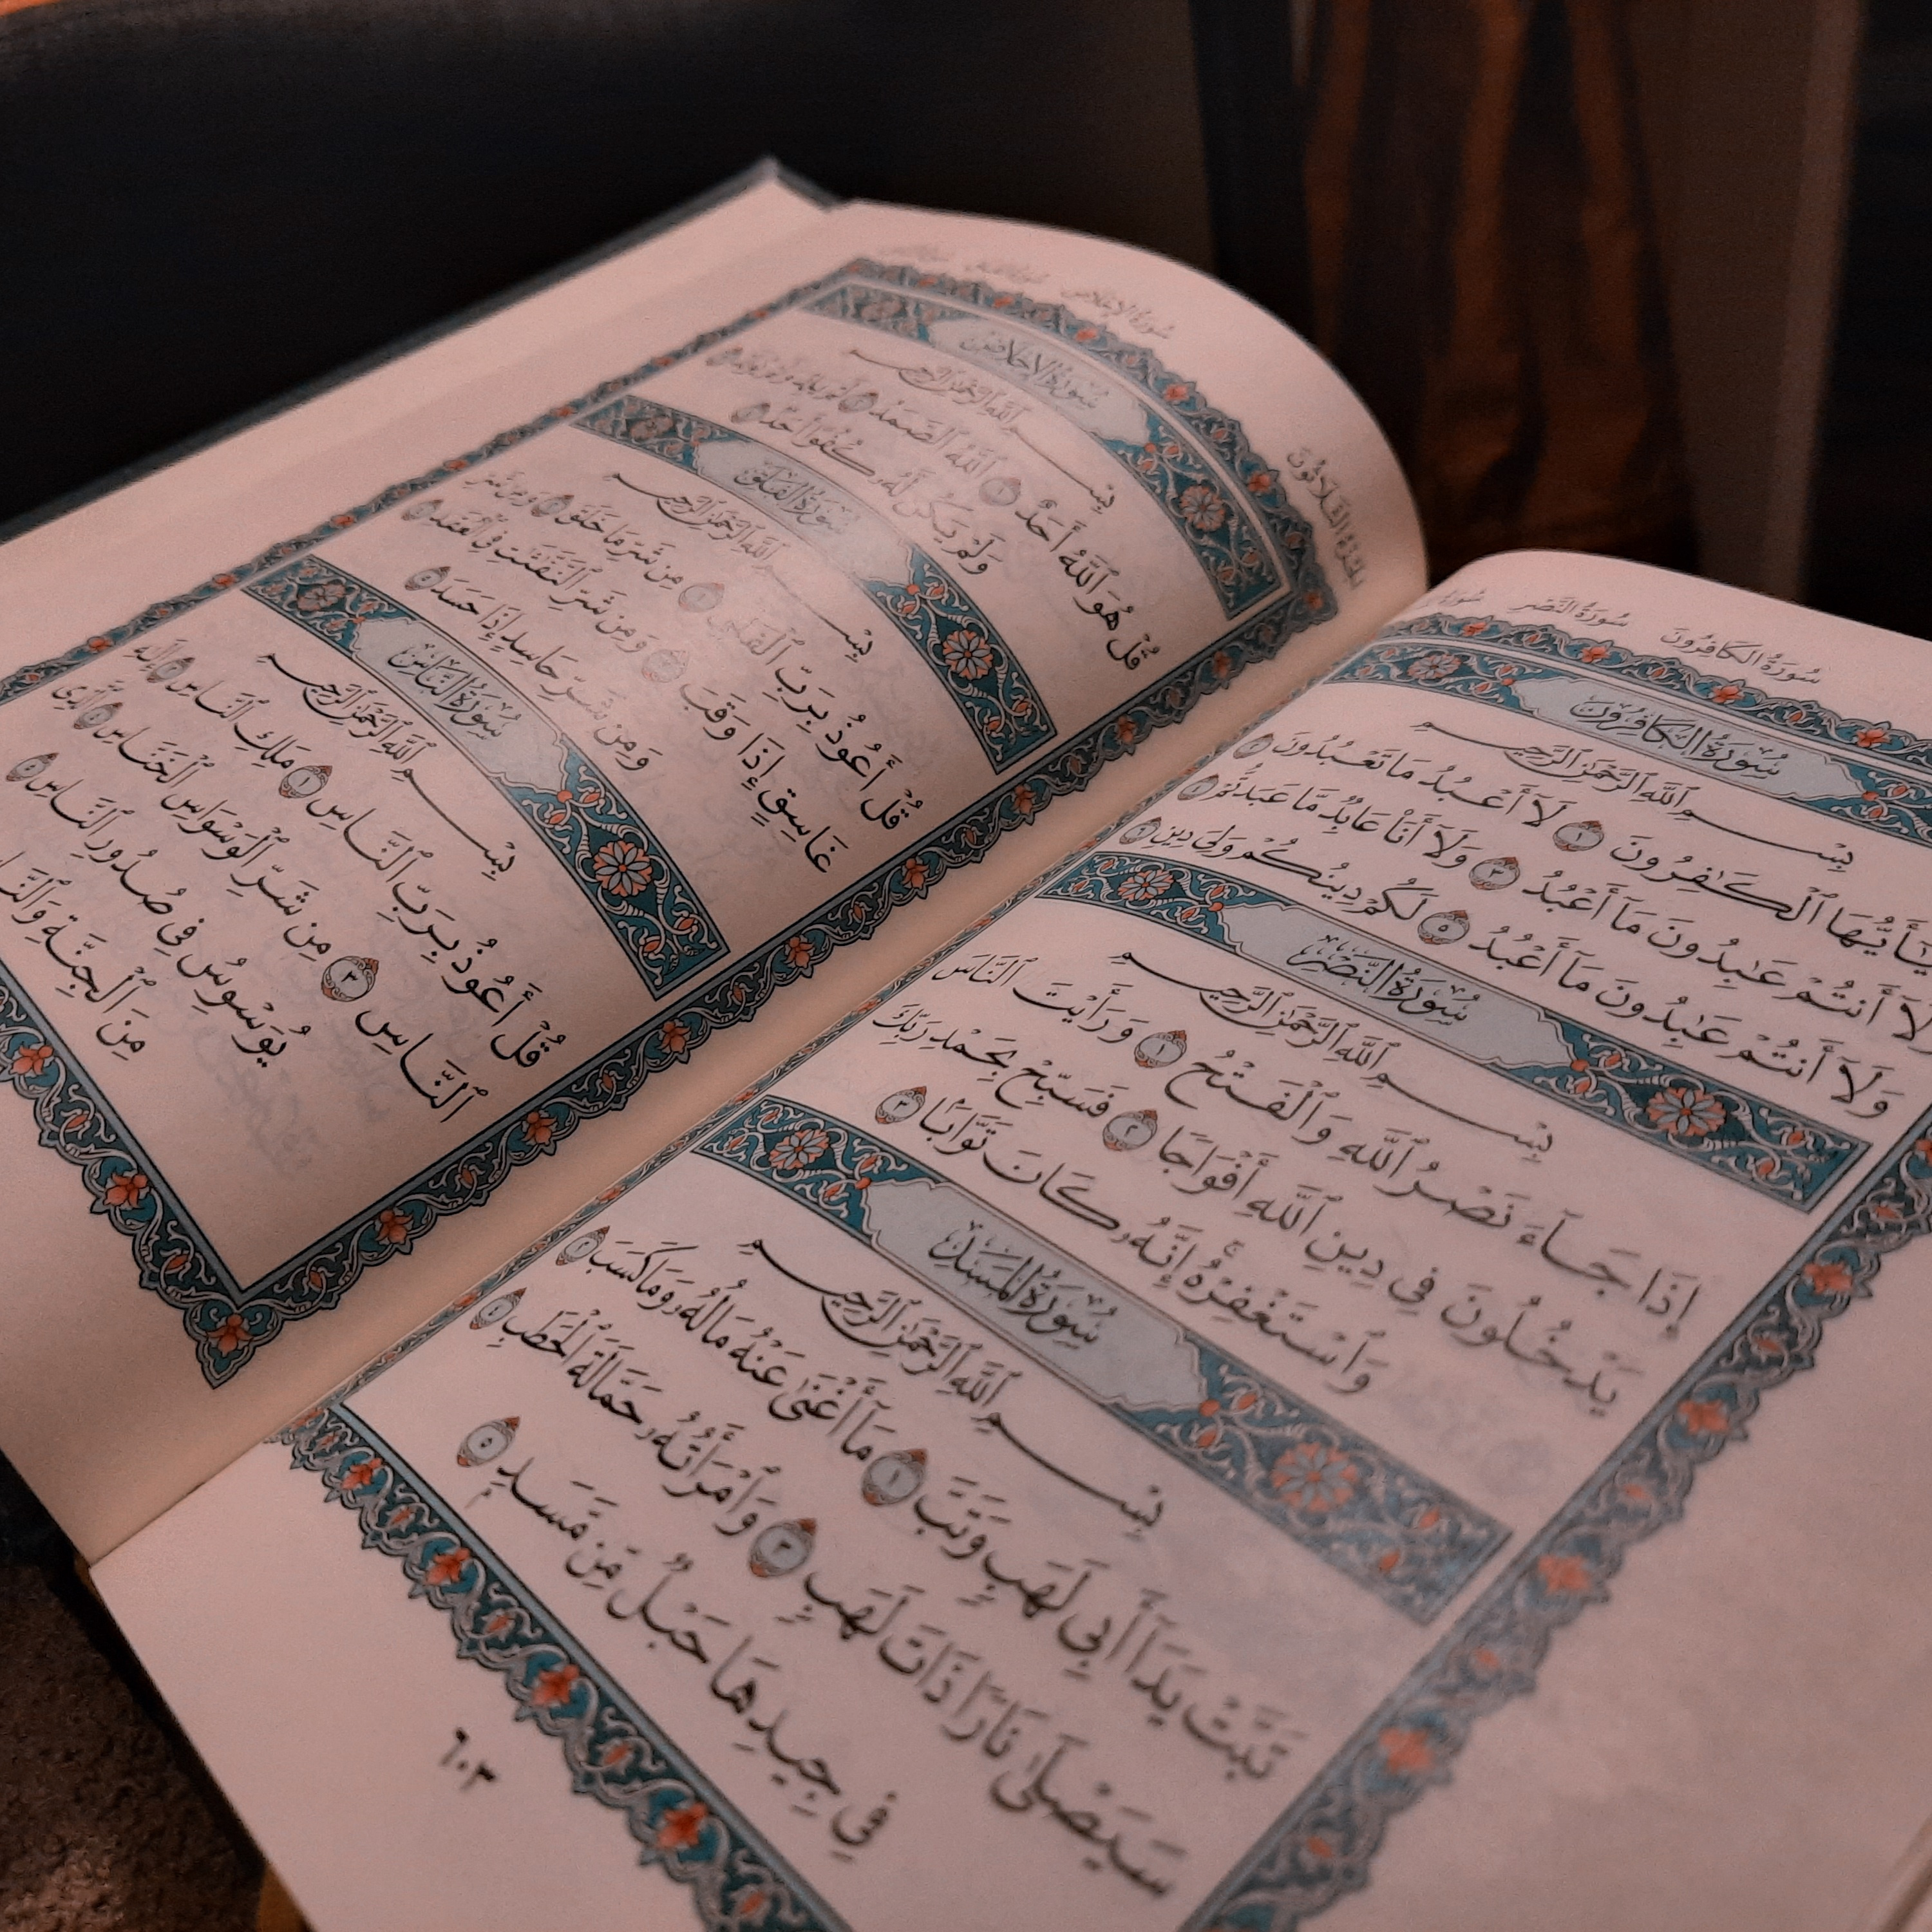 سُورَةُ الكَافِرُونَ سُورَةُ النَّصْرِ
سُورَةُ الكَافِرُونَ
بِسْمِ ٱللَّهِ ٱلرَّحْمَٰنِ ٱلرَّحِيمِ
يَٰٓأَيُّهَا ٱلْكَٰفِرُونَ ١ لَآ أَعْبُدُ مَا تَعْبُدُونَ ٢
وَلَآ أَنتُمْ عَٰبِدُونَ مَآ أَعْبُدُ ٣ وَلَآ أَنَا۠ عَابِدٌ مَّا عَبَدتُّمْ ٤
وَلَآ أَنتُمْ عَٰبِدُونَ مَآ أَعْبُدُ ٥ لَكُمْ دِينُكُمْ وَلِيَ دِينِ ٦
سُورَةُ النَّصْرِ
بِسْمِ ٱللَّهِ ٱلرَّحْمَٰنِ ٱلرَّحِيمِ
إِذَا جَآءَ نَصْرُ ٱللَّهِ وَٱلْفَتْحُ ١ وَرَأَيْتَ ٱلنَّاسَ
يَدْخُلُونَ فِي دِينِ ٱللَّهِ أَفْوَاجًا ٢ فَسَبِّحْ بِحَمْدِ رَبِّكَ
وَٱسْتَغْفِرْهُ ۚ إِنَّهُۥ كَانَ تَوَّابًۢا ٣
سُورَةُ المَسَدِ
بِسْمِ ٱللَّهِ ٱلرَّحْمَٰنِ ٱلرَّحِيمِ
تَبَّتْ يَدَآ أَبِي لَهَبٍ وَتَبَّ ١ مَآ أَغْنَىٰ عَنْهُ مَالُهُۥ وَمَا كَسَبَ ٢
سَيَصْلَىٰ نَارًا ذَاتَ لَهَبٍ ٣ وَٱمْرَأَتُهُۥ حَمَّالَةَ ٱلْحَطَبِ ٤
فِي جِيدِهَا حَبْلٌ مِّن مَّسَدٍۭ ٥
٦٠٣
سُورَةُ الإِخْلَاصِ
الجُزْءُ الثَّلَاثُونَ
سُورَةُ الإِخْلَاصِ
بِسْمِ ٱللَّهِ ٱلرَّحْمَٰنِ ٱلرَّحِيمِ
قُلْ هُوَ ٱللَّهُ أَحَدٌ ١ ٱللَّهُ ٱلصَّمَدُ ٢ لَمْ يَلِدْ وَلَمْ يُولَدْ ٣
وَلَمْ يَكُن لَّهُۥ كُفُوًا أَحَدٌۢ ٤
سُورَةُ الفَلَقِ
بِسْمِ ٱللَّهِ ٱلرَّحْمَٰنِ ٱلرَّحِيمِ
قُلْ أَعُوذُ بِرَبِّ ٱلْفَلَقِ ١ مِن شَرِّ مَا خَلَقَ ٢ وَمِن شَرِّ
غَاسِقٍ إِذَا وَقَبَ ٣ وَمِن شَرِّ ٱلنَّفَّٰثَٰتِ فِي ٱلْعُقَدِ ٤
وَمِن شَرِّ حَاسِدٍ إِذَا حَسَدَ ٥
سُورَةُ النَّاسِ
بِسْمِ ٱللَّهِ ٱلرَّحْمَٰنِ ٱلرَّحِيمِ
قُلْ أَعُوذُ بِرَبِّ ٱلنَّاسِ ١ مَلِكِ ٱلنَّاسِ ٢ إِلَٰهِ
ٱلنَّاسِ ٣ مِن شَرِّ ٱلْوَسْوَاسِ ٱلْخَنَّاسِ ٤ ٱلَّذِي
يُوَسْوِسُ فِي صُدُورِ ٱلنَّاسِ ٥
مِنَ ٱلْجِنَّةِ